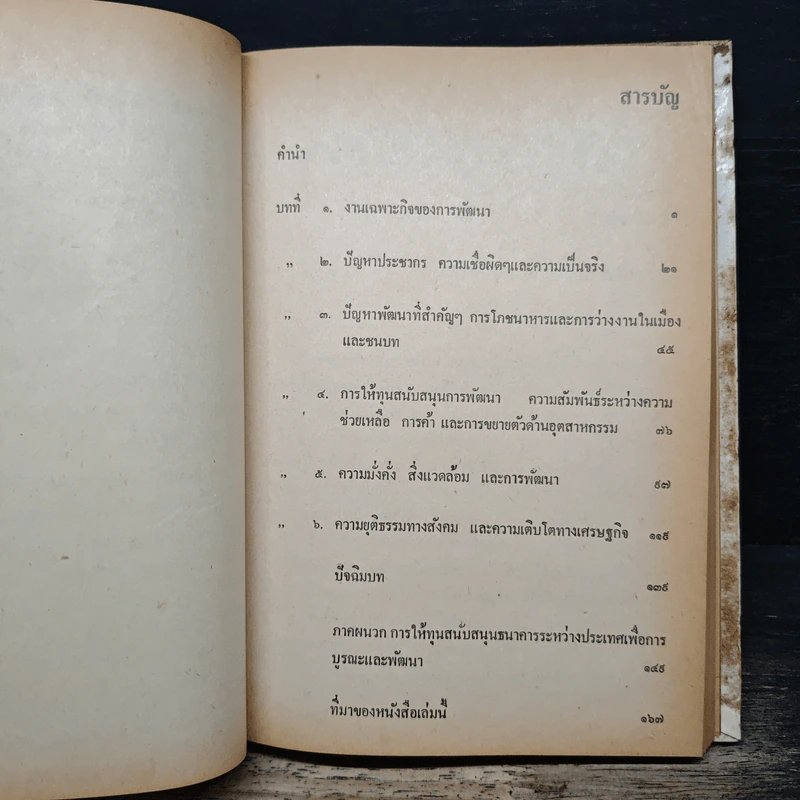 สารบัญ
คำนำ
บทที่ ๑. งานเฉพาะกิจของการพัฒนา ๑
„ ๒. ปัญหาประชากร ความเชื่อผิดๆและความเป็นจริง ๒๑
„ ๓. ปัญหาพัฒนาที่สำคัญๆ การโภชนาหารและการว่างงานในเมือง
และชนบท ๔๕
„ ๔. การให้ทุนสนับสนุนการพัฒนา ความสัมพันธ์ระหว่างความ
ช่วยเหลือ การค้า และการขยายตัวด้านอุตสาหกรรม ๗๖
„ ๕. ความมั่งคั่ง สิ่งแวดล้อม และการพัฒนา ๙๗
„ ๖. ความยุติธรรมทางสังคม และความเติบโตทางเศรษฐกิจ ๑๑๙
ปัจฉิมบท ๑๓๙
ภาคผนวก การให้ทุนสนับสนุนธนาคารระหว่างประเทศเพื่อการ
บูรณะและพัฒนา ๑๔๙
ที่มาของหนังสือเล่มนี้ ๑๖๗